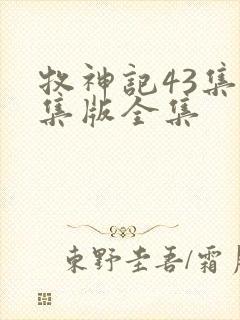 牧神記43集
集版全集
東野圭吾/霜月